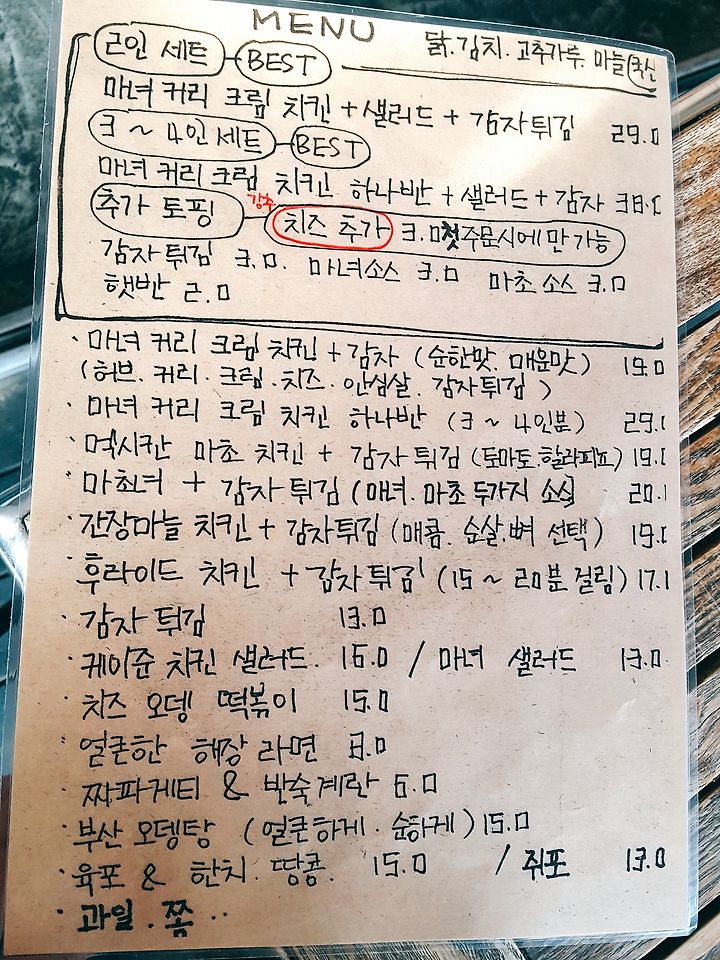 MENU
닭.김치.고추가루.마늘
2인 세트 BEST
마녀 커리 크림 치킨 + 샐러드 + 감자튀김 29.0
3 ~ 4인 세트 BEST
마녀 커리 크림 치킨 하나반 + 샐러드 + 감자
추가 토핑 강추 치즈 추가 3.0 첫주문시에만 가능
감자튀김 3.0. 마녀소스 3.0 마초 소스 3.0
햇반 2.0
· 마녀 커리 크림 치킨 + 감자 (순한맛. 매운맛) 19.0
(허브. 커리. 크림. 치즈. 안심살. 감자튀김)
· 마녀 커리 크림 치킨 하나반 (3 ~ 4인분) 29.
· 멕시칸 마초 치킨 + 감자 튀김 (토마토.할라피뇨) 19.
· 마초녀 + 감자 튀김 (매녀.마초 두가지 소스) 20.
· 간장마늘 치킨 + 감자튀김 (매콤. 순살.뼈 선택) 19.
· 후라이드 치킨 + 감자 튀김 (15 ~ 20분 걸림) 17.
· 감자 튀김 13.0
· 케이준 치킨 샐러드. 16.0 / 마녀 샐러드 13.0
· 치즈 오뎅 떡볶이 15.0
· 얼큰한 해장 라면 8.0
· 짜파게티 & 반숙계란 6.0
· 부산 오뎅탕 (얼큰하게. 순하게) 15.0
· 육포 & 한치. 땅콩. 15.0 / 쥐포 13.0
· 과일. 쫌 ..